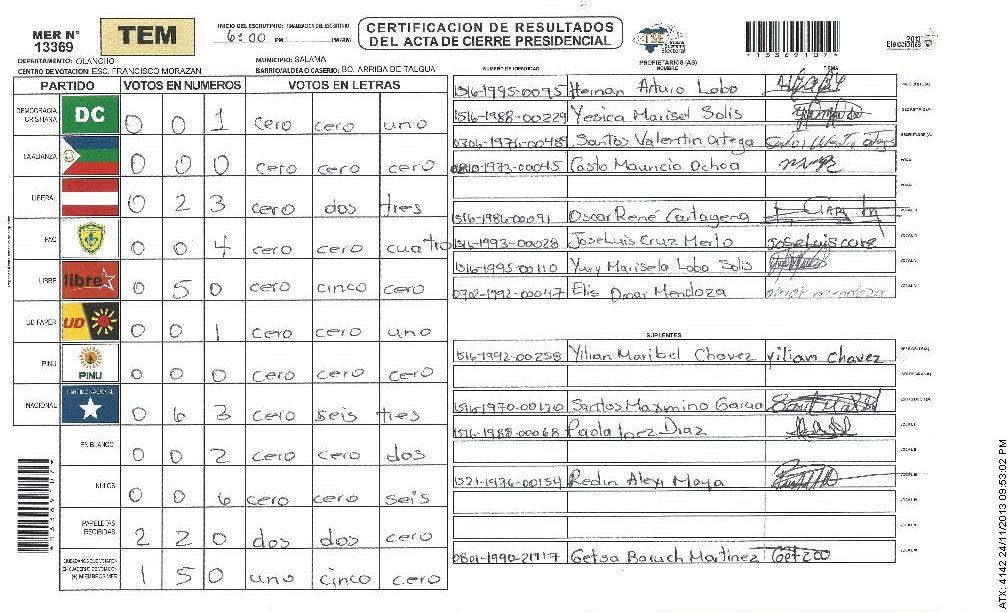 MER N° 13369
TEM
INICIO DEL ESCRUTINIO: FINALIZACION DEL ESCRUTINIO
6:00 PM PM/AM
CERTIFICACION DE RESULTADOS
DEL ACTA DE CIERRE PRESIDENCIAL
TSE Tribunal Supremo Electoral
133691071
2013 Elecciones
DEPARTAMENTO: OLANCHO MUNICIPIO: SALAMA
CENTRO DE VOTACION: ESC. FRANCISCO MORAZAN BARRIO/ALDEA O CASERIO: BO. ARRIBA DE TALGUA
PARTIDO VOTOS EN NUMEROS VOTOS EN LETRAS
DEMOCRACIA CRISTIANA DC 0 0 1 cero cero uno
LA ALIANZA 0 0 0 cero cero cero
LIBERAL 0 2 3 cero dos tres
PAC 0 0 4 cero cero cuatro
LIBRE libre 0 5 0 cero cinco cero
UD FAPER UD 0 0 1 cero cero uno
PINU PINU 0 0 0 cero cero cero
NACIONAL PARTIDO NACIONAL 0 6 3 cero seis tres
EN BLANCO 0 0 2 cero cero dos
NULOS 0 0 6 cero cero seis
PAPELETAS RECIBIDAS 2 2 0 dos dos cero
CIUDADANOS QUE VOTARON EN CUADERNO DE VOTACION (+) MIEMBROS MER 1 5 0 uno cinco cero
PROPIETARIOS (AS)
NUMERO DE IDENTIDAD NOMBRE FIRMA
1516-1995-0095 Hernan Arturo Lobo PRESIDENTE(A)
1516-1988-00229 Yesica Marisel Solis SECRETARIO(A)
0306-1976-00485 Santos Valentin Ortega
0810-1973-00045 Casto Mauricio Ochoa VOCAL I
1516-1986-00091 Oscar René Cartagena
1516-1993-00028 Jose Luis Cruz Merlo Jose Luis cruz
1516-1995-00110 Yury Marisela Lobo Solis
0702-1992-00047 Elis Omar Mendoza omar mendoza
SUPLENTES
1516-1992-00258 Yilian Maribel Chavez yilian chavez PRESIDENTE(A)
SECRETARIO(A)
1516-1970-00130 Santos Maxmino Garcia
1516-1988-00068 Paola Inez Diaz
1521-1976-00154 Redin Alexi Maya
0801-1990-21917 Getsa Baruch Martinez
ATX: 4142 24/11/2013 09:53:02 PM